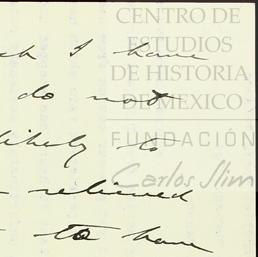 CENTRO DE
ESTUDIOS
DE HISTORIA
DE MEXICO
FUNDACIÓN
Carlos Slim
I have
do not
likely to
relieved
to have